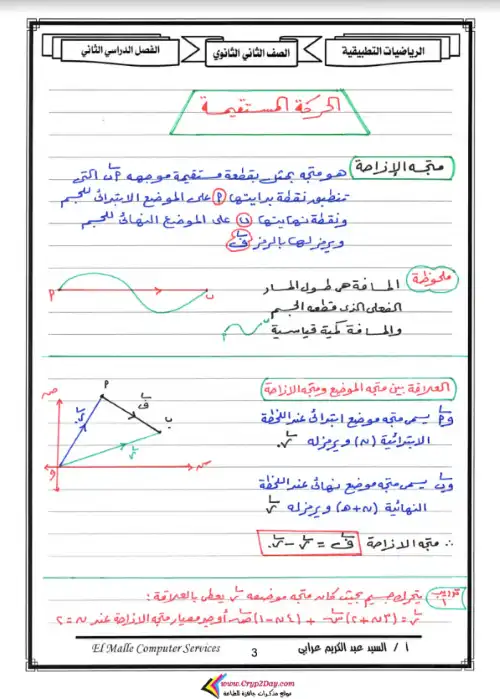 الرياضيات التطبيقية
الصف الثاني الثانوي
الفصل الدراسي الثاني
الحركة المستقيمة
متجه الإزاحة
هو متجه يمثل بقطعة مستقيمة موجهه أب التى
تنطبق نقطة بدايتها (أ) على الموضع الابتدائى للجسم
ونقطة نهايتها (ب) على الموضع النهائى للجسم
ويرمز لها بالرمز ف
ملحوظة
المسافة هى طول المسار
الفعلى الذى قطعه الجسم
والمسافة كمية قياسية أ ب
أ ب
العلاقة بين متجه الموضع ومتجه الازاحة
وأ يسمى متجه موضع ابتدائى عند اللحظة
الابتدائية (ن) ويرمز له ر.
وب يسمى متجه موضع نهائى عند اللحظة
النهائية (ن+هـ) ويرمز له ر
ص أ ف ب ر. ر و س
∴ متجه الازاحة ف = ر - ر.
تدريب ١
يتحرك جسيم بحيث كان متجه موضعه ر يعطى بالعلاقة :
ر = (٣ن + ٢) س + (٤ن - ١) ص أوجد معيار متجه الازاحة عند ن = ٢
El Malle Computer Services
3
أ / السيد عبد الكريم عرابى
www.Cryp2Day.com
موقع مذكرات جاهزة للطباعة